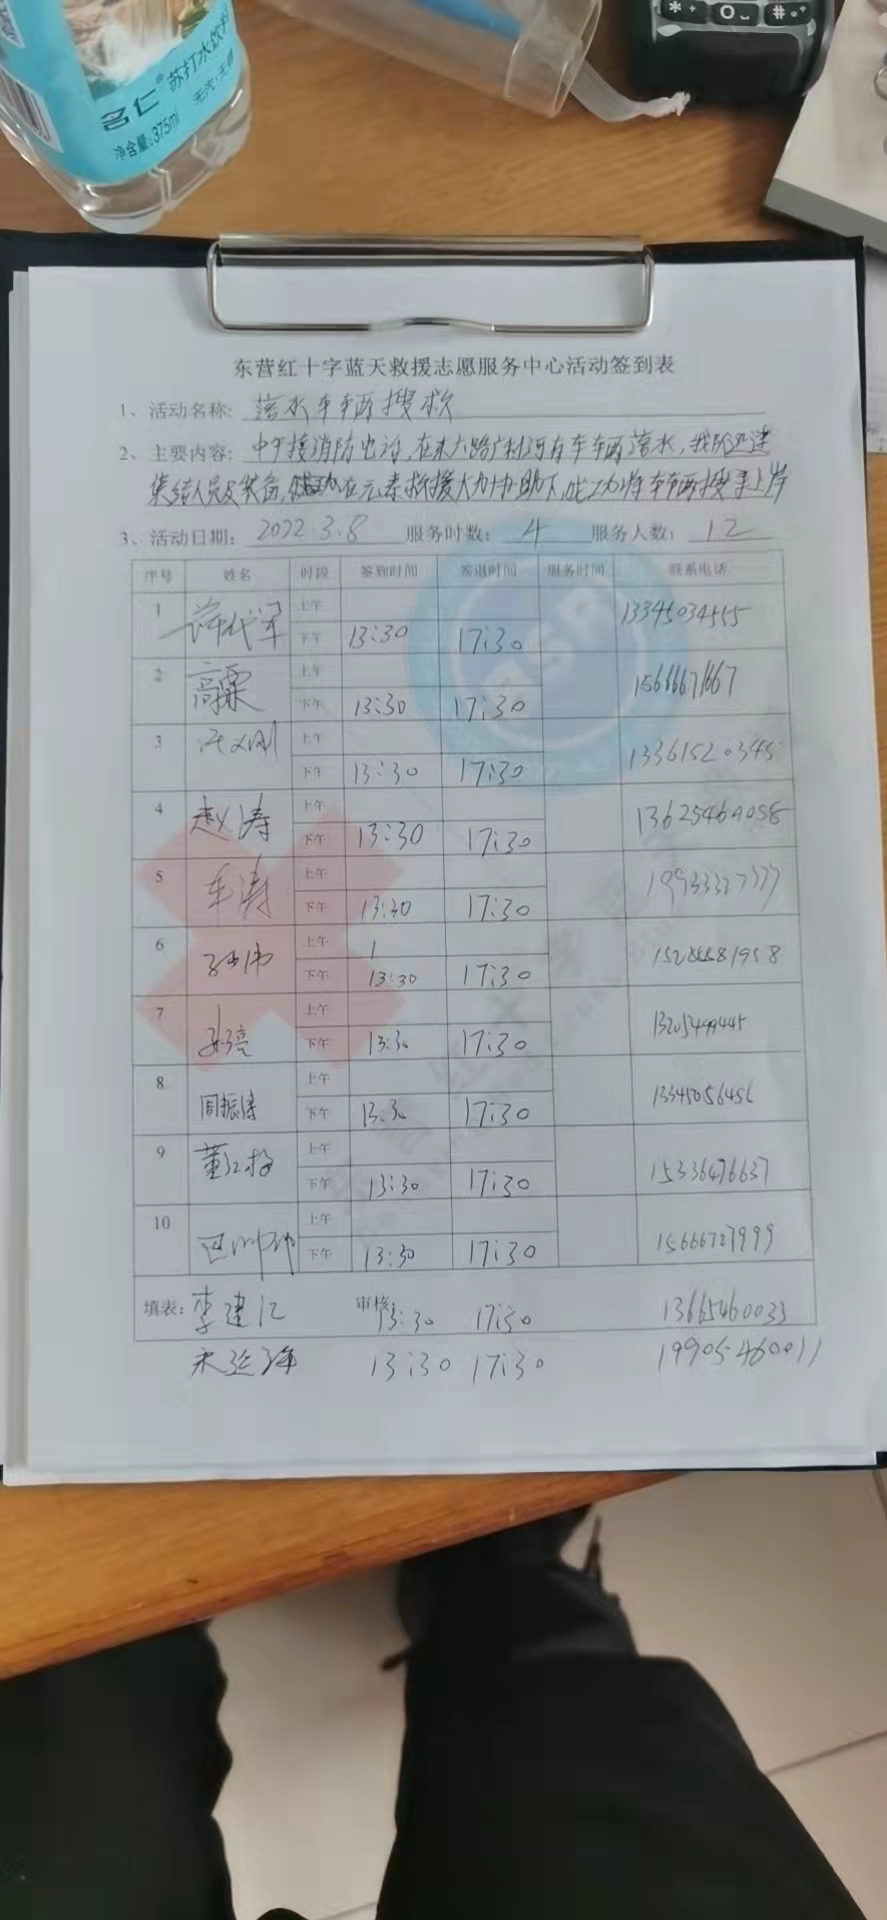 名仁 苏打水饮料
无汽·无糖
净含量:375ml
* O #
东营红十字蓝天救援志愿服务中心活动签到表
1、活动名称: 落水车辆搜救
2、主要内容: 中午接消防电话,在东六路广利河有车辆落水,我队迅速
集结人员及装备,在元素救援大力协助下,成功将车辆搜寻上岸
3、活动日期: 2022.3.8 服务时数: 4 服务人数: 12
序号 姓名 时段 签到时间 签退时间 服务时间 联系电话
1 薛代军 上午 13345034555
下午 13:30 17:30
2 高霖 上午 15666671667
下午 13:30 17:30
3 上午 13361520345
下午 13:30 17:30
4 赵涛 上午 13625469058
下午 13:30 17:30
5 车涛 上午 19933327777
下午 13:30 17:30
6 上午 1
下午 13:30 17:30
7 上午
下午 13:30 17:30
8 周振涛 上午 13345056456
下午 13:30 17:30
9 上午 15336476637
下午 13:30 17:30
10 巴帅帅 上午 15666727999
下午 13:30 17:30
填表: 李建江 审核: 13:30 17:30 13665460033
13:30 17:30 19905460011